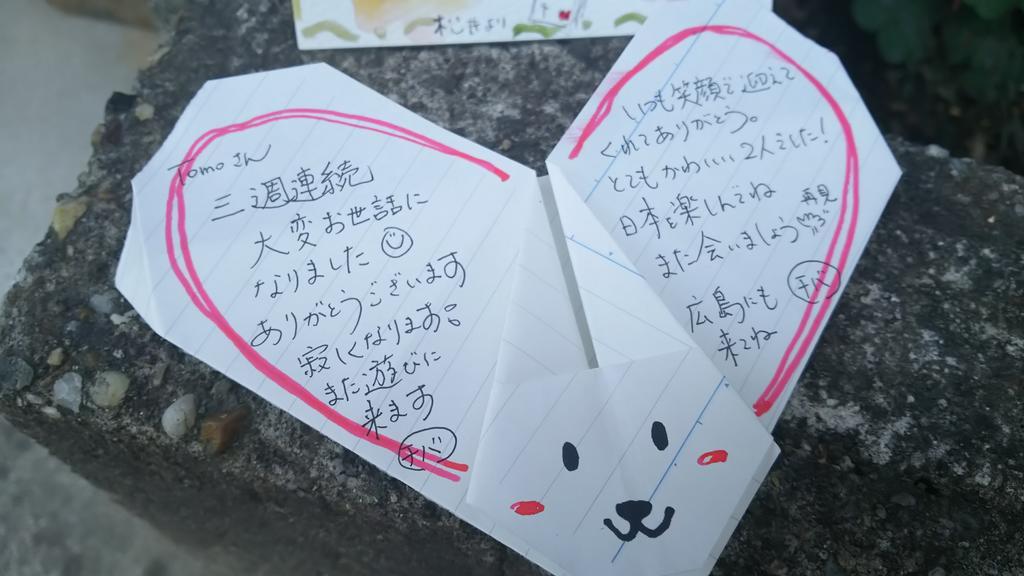 松江より
Tomoさん
三週連続
大変お世話に
なりました
ありがとうございます
寂しくなります。
また遊びに
来ます
チバ
いつも笑顔で迎えて
くれてありがとう。
とてもかわいい、、2人でした!
日本を楽しんでね
また会いましょう
再見
広島にも
来てね
チバ